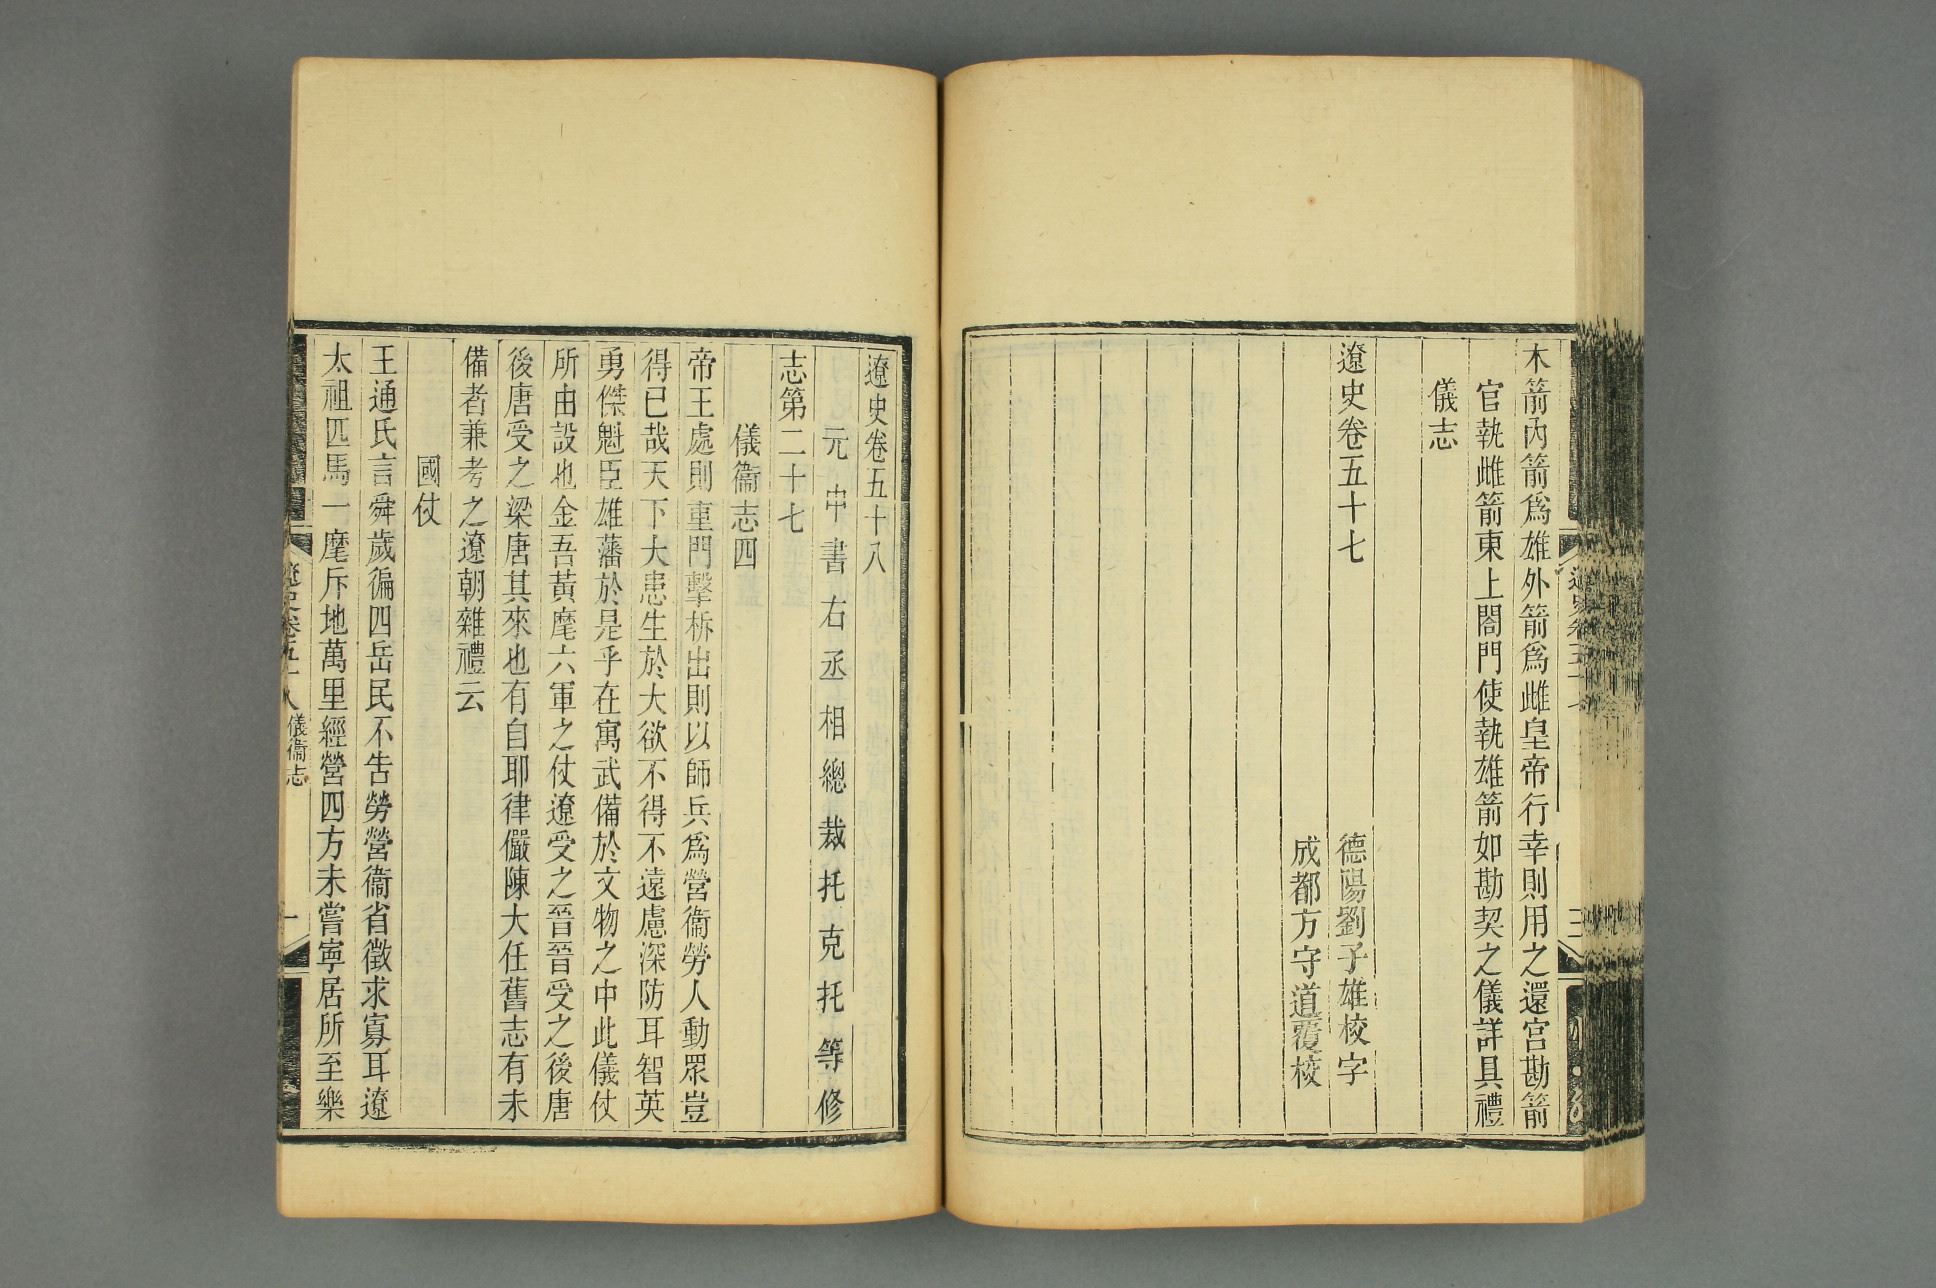 木箭内箭爲雄外箭爲雌皇帝行幸則用之還宮勘箭
官執雌箭東上閤門使執雄箭如勘契之儀詳具禮
儀志
遼史卷五十七
德陽劉子雄校字
成都方守道覆校
遼史卷五十八
元中書右丞相總裁托克托等修
志第二十七
儀衞志四
帝王處則重門擊柝出則以師兵爲營衞勞人動眾豈
得已哉天下大患生於大欲不得不遠慮深防耳智英
勇傑魁臣雄藩於是乎在寓武備於文物之中此儀仗
所由設也金吾黃麾六軍之仗遼受之晉晉受之後唐
後唐受之梁唐其來也有自耶律儼陳大任舊志有未
備者兼考之遼朝雜禮云
國仗
王通氏言舜歲徧四岳民不告勞營衞省徵求寡耳遼
太祖匹馬一麾斥地萬里經營四方未嘗寕居所至樂
遼史卷五十八 儀衞志 一